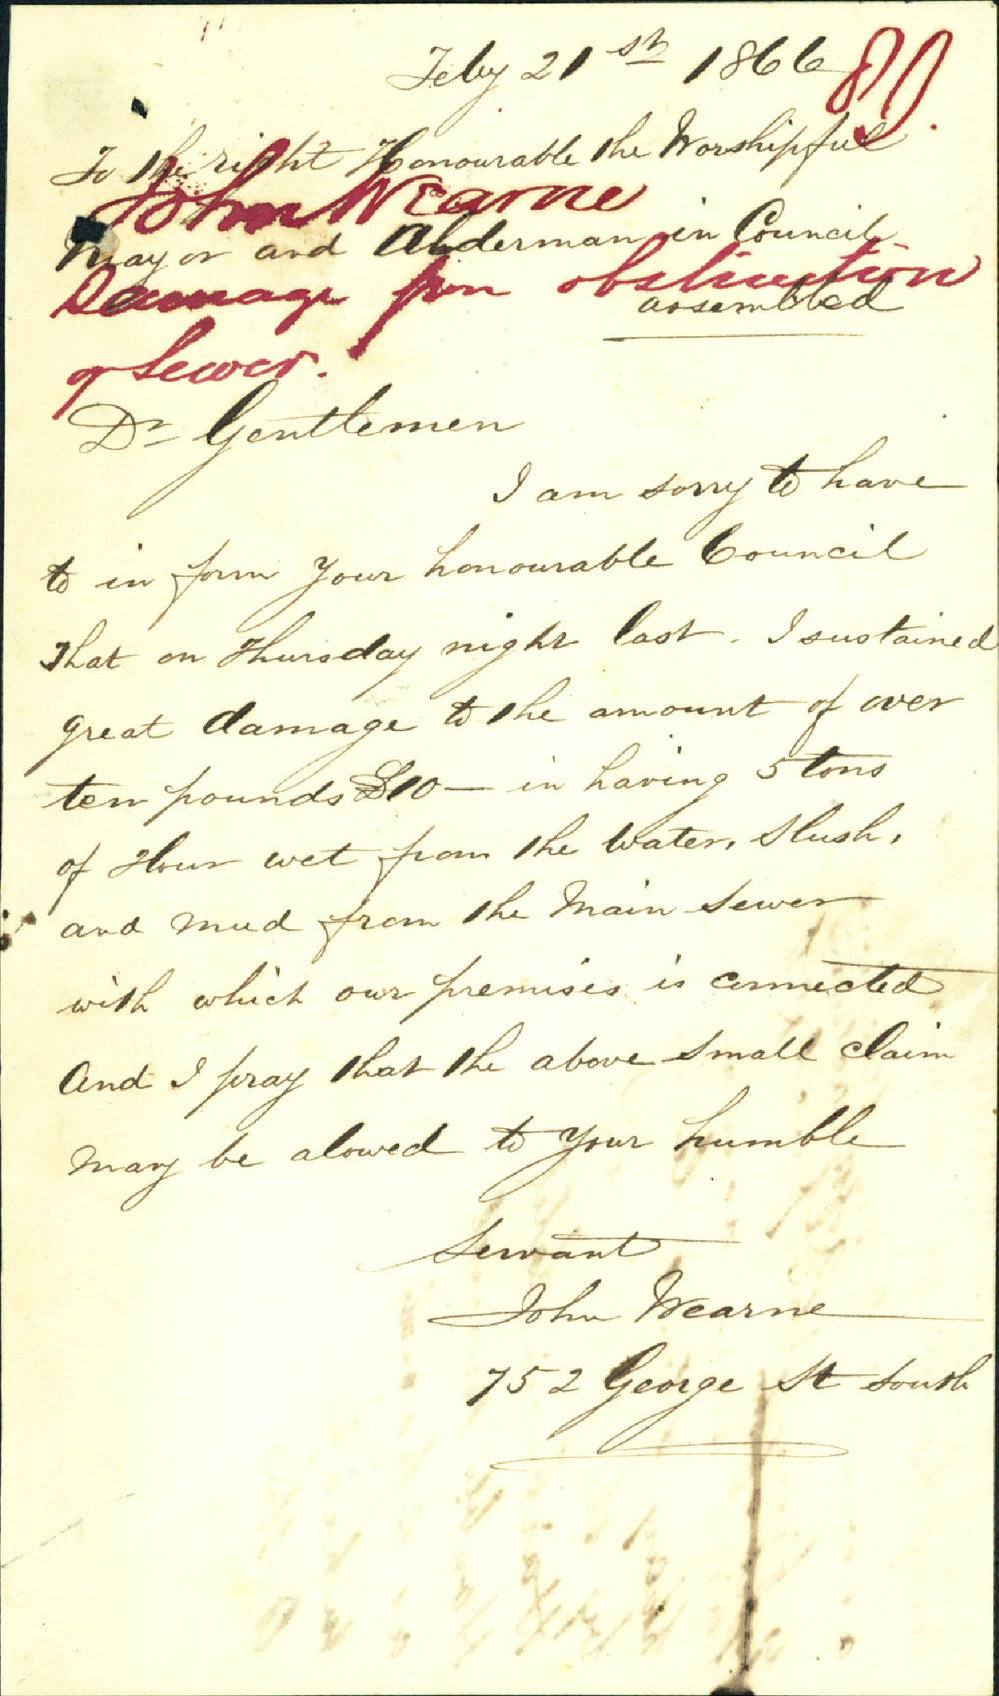 Feby 21st 1866
80.
To the right Honourable the Worshipful
John Wearne
Mayor and Alderman in Council
Damage from obstruction
assembled
of Sewer.
Dr Gentlemen
I am sorry to have
to in form your honourable Council
That on Thursday night last. I sustained
great damage to the amount of over
ten pounds £10 — in having 5 tons
of Flour wet from the Water, Slush,
and Mud from the Main Sewer
with which our premises is connected
And I pray that the above small claim
may be alowed to your humble
Servant
John Wearne
752 George St South